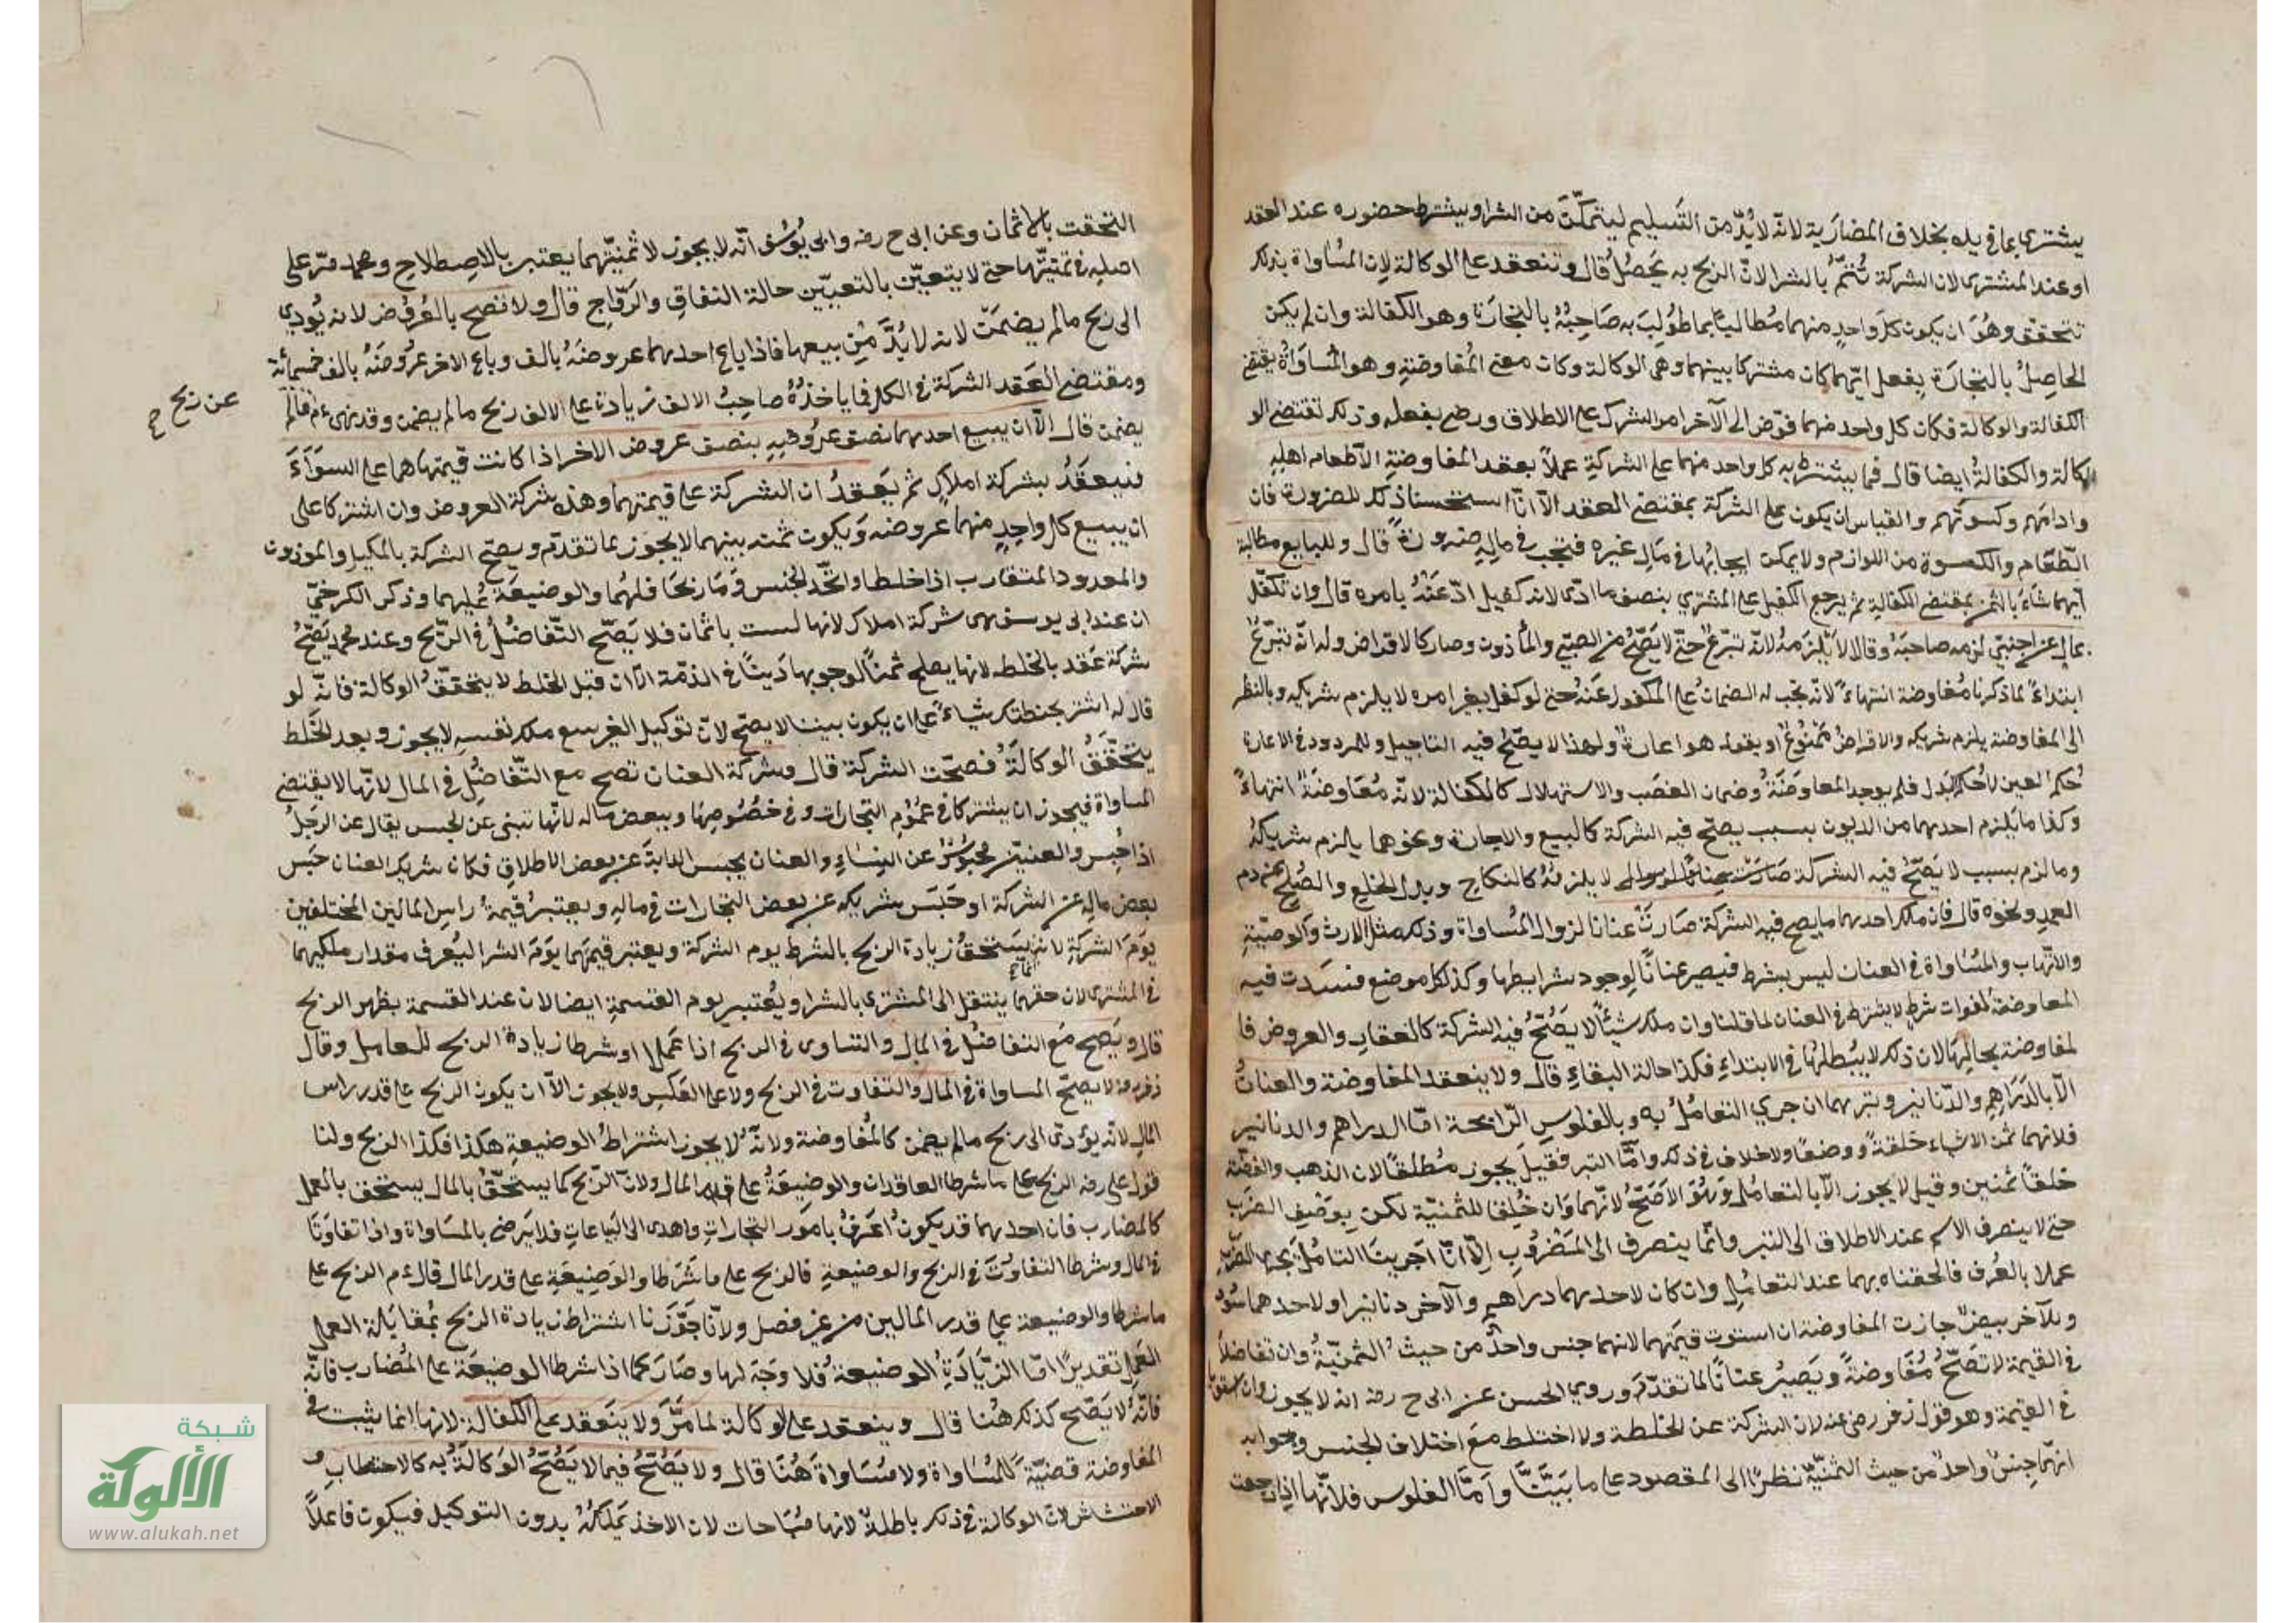 يشترى بما فى يده بخلاف المضاربة لانه لابد من التسليم ليتمكن من الشرا ويشترط حضوره عند العقد
او عند المشترى لان الشركة تتم بالشرا لان الربح به يحصل قال وتنعقد على الوكالة لان المساواة بذلك
تتحقق وهو ان يكون كل واحد منهما مطالبا بما طولب به صاحبه بالتجارة وهو الكفالة وان لم يكن
الحاصل بالتجارة بفعل ايهما كان مشتركا بينهما وهى الوكالة وكان معنى المفاوضة وهو المساواة يقتضى
الكفالة والوكالة فكان كل واحد منهما فوض الى الآخر امر الشركة على الاطلاق ورضى بفعله وذلك تقتضى الو
كالة والكفالة ايضا قال فما يشتريه كل واحد منهما على الشركة عملا بعقد المفاوضة الا طعام اهله
وادامهم وكسوتهم والقياس ان يكون على الشركة بمقتضى العقد الا انا استحسنا ذلك للضرورة فان
الطعام والكسوة من اللوازم ولا يمكن ايجابها فى مال غيره فتجب فى ماله ضرورة قال وللبايع مطالبة
ايهما شاء بالثمن بمقتضى الكفالة ثم يرجع الكفيل على المشترى بنصف ما ادى لانه كفيل ادى عنه بامره قال وان تكفل
بمال عن اجنبى لزم صاحبه وقالا لا يلزمه لانه تبرع حتى لا يصح من الصبى والمأذون وصار كالاقراض وله انه تبرع
ابتداء لما ذكرنا مفاوضة انتهاء لانه تجب له الضمان على المكفول عنه حتى لو كفل بغير امره لا يلزم شريكه وبالنظر
الى المفاوضة يلزم شريكه والاقراض ممنوع او يقول هو اعارة ولهذا لا يصح فيه التاجيل وللمردود فى الاعارة
حكم العين لا حكم البدل فلم يوجد المعاوضة وضمان الغصب والاستهلاك كالكفالة لانه معاوضة انتهاء
وكذا ما يلزم احدهما من الديون بسبب يصح فيه الشركة كالبيع والاجارة ونحوهما يلزم شريكه
وما لزم بسبب لا يصح فيه الشركة لا يلزمه كالنكاح وبدل الخلع والصلح عن دم
العمد ونحوه قال فان ملك احدهما ما يصح فيه الشركة صارت عنانا لزوال المساواة وذلك مثل الارث والوصية
والاتهاب والمساواة فى العنان ليس بشرط فيصير عنانا لوجود شرايطها وكذلك كل موضع فسدت فيه
المعاوضة لفوات شرط لا يشترط فى العنان لما قلنا وان ملك شيئا لا يصح فيه الشركة كالعقار والعروض فا
لمفاوضة بحالها لان ذلك لا يبطلها فى الابتداء فكذا حالة البقاء قال ولا ينعقد المفاوضة والعنان
الا بالدراهم والدنانير وتبرهما ان جرى التعامل به وبالفلوس الرائجة اما الدراهم والدنانير
فلانهما ثمن الاشياء خلقة ووضعا ولا خلاف فى ذلك واما التبر فقيل يجوز مطلقا لان الذهب والفضة
خلقا ثمنين وقيل لا يجوز الا بالتعامل وهو الاصح لانهما وان خلقا للثمنية لكن بوصف الضرب
حتى لا ينصرف الاسم عند الاطلاق الى التبر وانما ينصرف الى المضروب الا انا اجرينا التعامل مجرى الضرب
عملا بالعرف فالحقناه بهما عند التعامل وان كان لاحدهما دراهم والآخر دنانير او لاحدهما سود
وللآخر بيض جازت المفاوضة ان استوت قيمتهما لانهما جنس واحد من حيث الثمنية وان تفاضلا
فى القيمة لا تصح مفاوضة ويصير عنانا لما تقدم وروى الحسن عن ابى ح رضه انه لا يجوز وان اتفقا
فى القيمة وهو قول زفر رضى عنه لان الشركة عن الخلطة ولا اختلط مع اختلاف الجنس وجوابه
انهما جنس واحد من حيث الثمنية نظرا الى المقصود على ما بينا واما الفلوس فلانها اذا راجت
التحقت بالاثمان وعن ابى ح رضه وابى يوسف انه لا يجوز لا ثمنيتهما يعتبر بالاصطلاح ومحمد مر على
اصله فى ثمنيتها حتى لا يتعين بالتعيين حالة النفاق والرواج قال ولا تصح بالعروض لانه يؤدى
الى ربح مالم يضمن لانه لابد من بيعها فاذا باع احدهما عروضه بالف وباع الاخر عروضه بالف خمسمائة
ومقتضى العقد الشركة فى الكل فما ياخذه صاحب الالف زيادة على الالف ربح مالم يضمن وقد نهى ءم
عن ربح
يضمن قال الا ان يبيع احدهما نصف عروضه بنصف عروض الاخر اذا كانت قيمتهاهما على السواء
فينعقد بشركة املاك ثم يعقد ان الشركة على قيمتهما وهذه شركة العروض وان اشتركا على
ان يبيع كل واحد منهما عروضه ويكون ثمنه بينهما لا يجوز بما تقدم ويصح الشركة بالمكيل والموزون
والمعدود المتقارب اذا خلطا واتحد الجنس وما ربحا فلهما والوضيعة عليهما وذكر الكرخى
ان عند ابى يوسف هى شركة املاك لانها لست باثمان فلا يصح التفاضل فى الربح وعند محمد يصح
شركة عقد بالخلط لانها يصلح ثمنا لوجوبها دينا فى الذمة الا ان قبل الخلط لا يتحقق الوكالة فانه لو
قال له اشتر بحنطتك شيا على ان يكون بيننا لا يصح لان توكيل الغير ببيع ملك نفسه لا يجوز وبعد الخلط
يتحقق الوكالة فصحت الشركة قال وشركة العنان تصح مع التفاضل فى المال لانها لا يقتضى
المساواة فيجوز ان يشتركا فى عموم التجارات وفى خصوصها وببعض ماله لانها تنبى عن الحبس يقال عن الرجل
اذا حبس والعنين محبوس عن النساء والعنان يحبس الدابة عن بعض الاطلاق فكان شريك العنان حبس
بعض ماله عن الشركة او حبس شريكه عن بعض التجارات فى ماله ويعتبر قيمة راس المالين المختلفين
يوم الشركة لانه يستحق زيادة الربح بالشرط يوم الشركة ويعتبر قيمتهما يوم الشرا ليعرف مقدار ملكيهما
فى المشترى لان حقهما ينتقل الى المشترى بالشرا ويعتبر يوم القسمة ايضا لان عند القسمة يظهر الربح
قال ويصح مع التفاضل فى المال والتساوى فى الربح اذا عملا او شرطا زيادة الربح للعامل وقال
زفر رضه لا يصح المساواة فى المال والتفاوت فى الربح ولا على العكس ولا يجوز الا ان يكون الربح على قدر راس
المال لانه يؤدى الى ربح مالم يضمن كالمفاوضة ولانه لا يجوز اشتراط الوضيعة هكذا فكذا الربح ولنا
قول على رضه الربح على ما شرطا العاقدان والوضيعة على قدر المال ولان الربح كما يستحق بالمال يستحق بالعمل
كالمضارب فان احدهما قد يكون اعرف بامور التجارات واهدى الى البياعات فلا يرضى بالمساواة واذا تفاوتا
فى المال وشرطا التفاوت فى الربح والوضيعة فالربح على ما شرطا والوضيعة على قدر المال قال ءم الربح على
ما شرطا والوضيعة على قدر المالين من غير فصل ولانا جوزنا اشتراط زيادة الربح بمقابلة العمل
العمل تقديرا اما الزيادة الوضيعة فلا وجه لها وصار كما اذا شرطا الوضيعة على المضارب فانه
فانه لا يصح كذلك هنا قال وينعقد على الوكالة لما مر ولا ينعقد على الكفالة لانها انما يثبت فى
المفاوضة قضية للمساواة ولا مساواة هنا قال ولا يصح فيما لا يصح الوكالة به كالاحتطاب و
الاحتشاش لان الوكالة فى ذلك باطلة لانها مباحات لان الاخذ يملكه بدون التوكيل فيكون فاعلا
شبكة
الألوكة
www.alukah.net